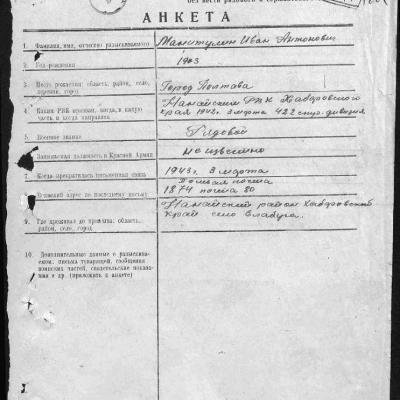 без вести рядового и
АНКЕТА
1. Фамилия, имя, отчество разыскиваемого
Манитулин Иван Антонович
2. Год рождения
1903
3. Место рождения: область, район, село, деревня, город
Город Полтава
4. Каким РВК призван, когда, в какую часть и когда направлен
Нанайским РВК Хабаровского
края 1942г. 3 марта 422 стр. дивизия
5. Военное звание
Рядовой
6. Занимаемая должность в Красной Армии
неизвестно
7. Когда прекратилась письменная связь
1943 г. 3 марта
8. Воинский адрес по последнему письму
Полевая почта
1874 почта 80
9. Где проживал до призыва: область, район, село, город
Нанайский район Хабаровский
край село Елабуга.
10. Дополнительные данные о разыскиваемом: письма товарищей, сообщения воинских частей, свидетельские показания и др. (приложить к анкете)